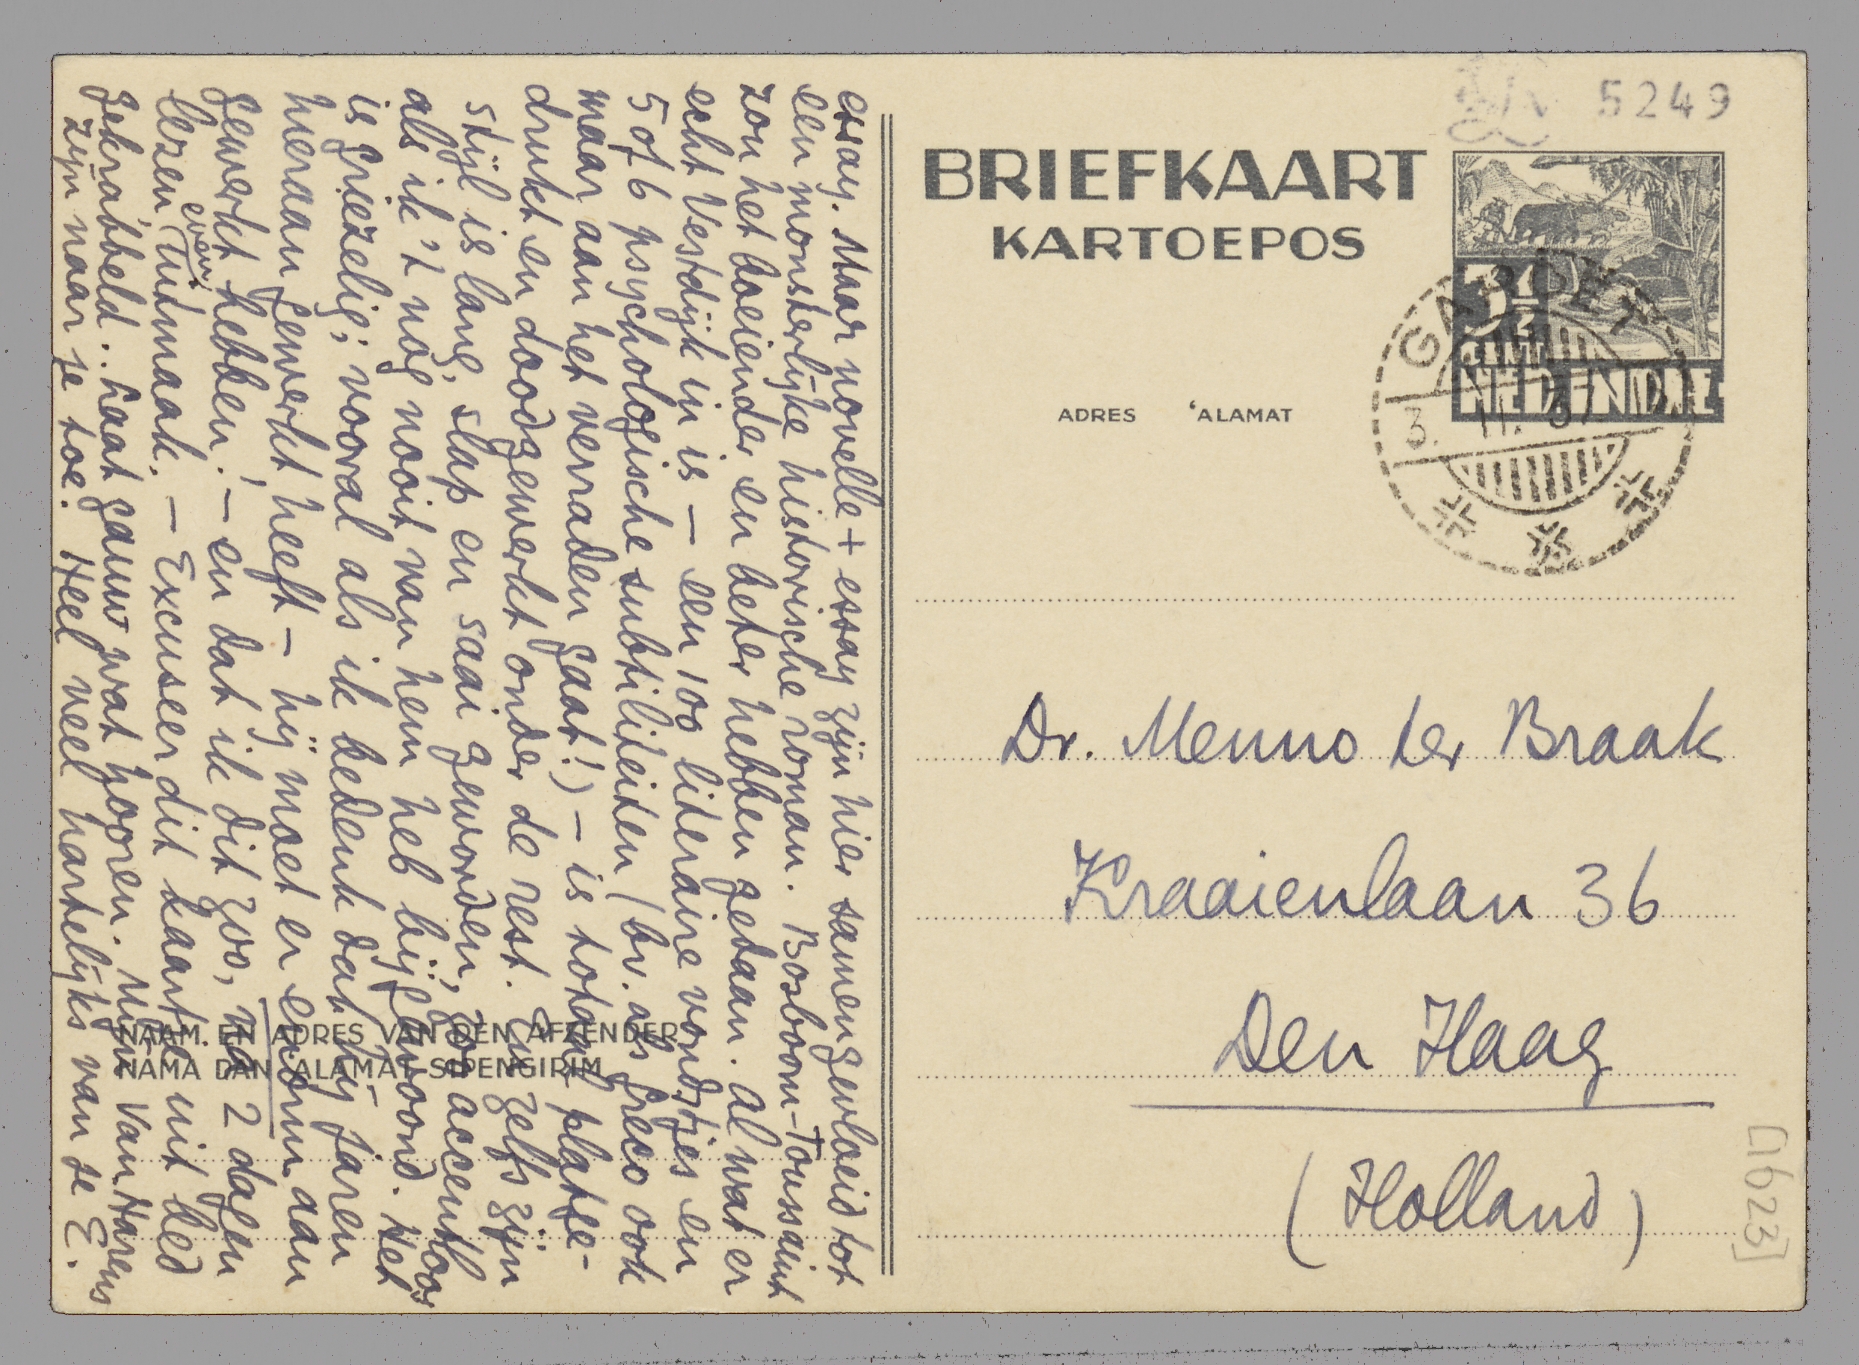 essay. Maar novelle + essay zijn hier samengevloeid tot
een monsterlijke historische roman. Bosboom-Toussaint
zou het boeiender en beter hebben gedaan. Al wat er
echt Vestdijk in is – een 100 literaire vondstjes en
5 of 6 psychologische subtiliteiten (bv. als Greco ook
maar aan het verraden gaat!) – is totaal platge-
drukt en doodgewerkt onder de rest. En zelfs zijn
stijl is lang, slap en saai geworden, zoo accentloos
als ik 't nog nooit van hem heb bijgewoond. Het
is griezelig; vooral als ik bedenk dat hij jaren
hieraan gewerkt heeft – hij moet er enorm aan
gewerkt hebben! – en dat ik dit zoo, na 2 dagen
lezen even, uitmaak. – Excuseer dit kaartje uit bed
gekrabbeld.. Laat gauw wat hooren. Mijn Van Harens
zijn naar je toe. Heel veel hartelijks van je E.
NAAM EN ADRES VAN DEN AFZENDER
NAMA DAN 'ALAMAT SIPENGIRIM
5249
BRIEFKAART
KARTOEPOS
3½
CENT
NED.INDIE
GAROET
3. 11. 37
ADRES 'ALAMAT
Dr. Menno ter Braak
Kraaienlaan 36
Den Haag
(Holland)
[1623]